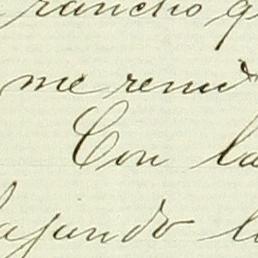 rancho q
me remi
Con la
ajando l